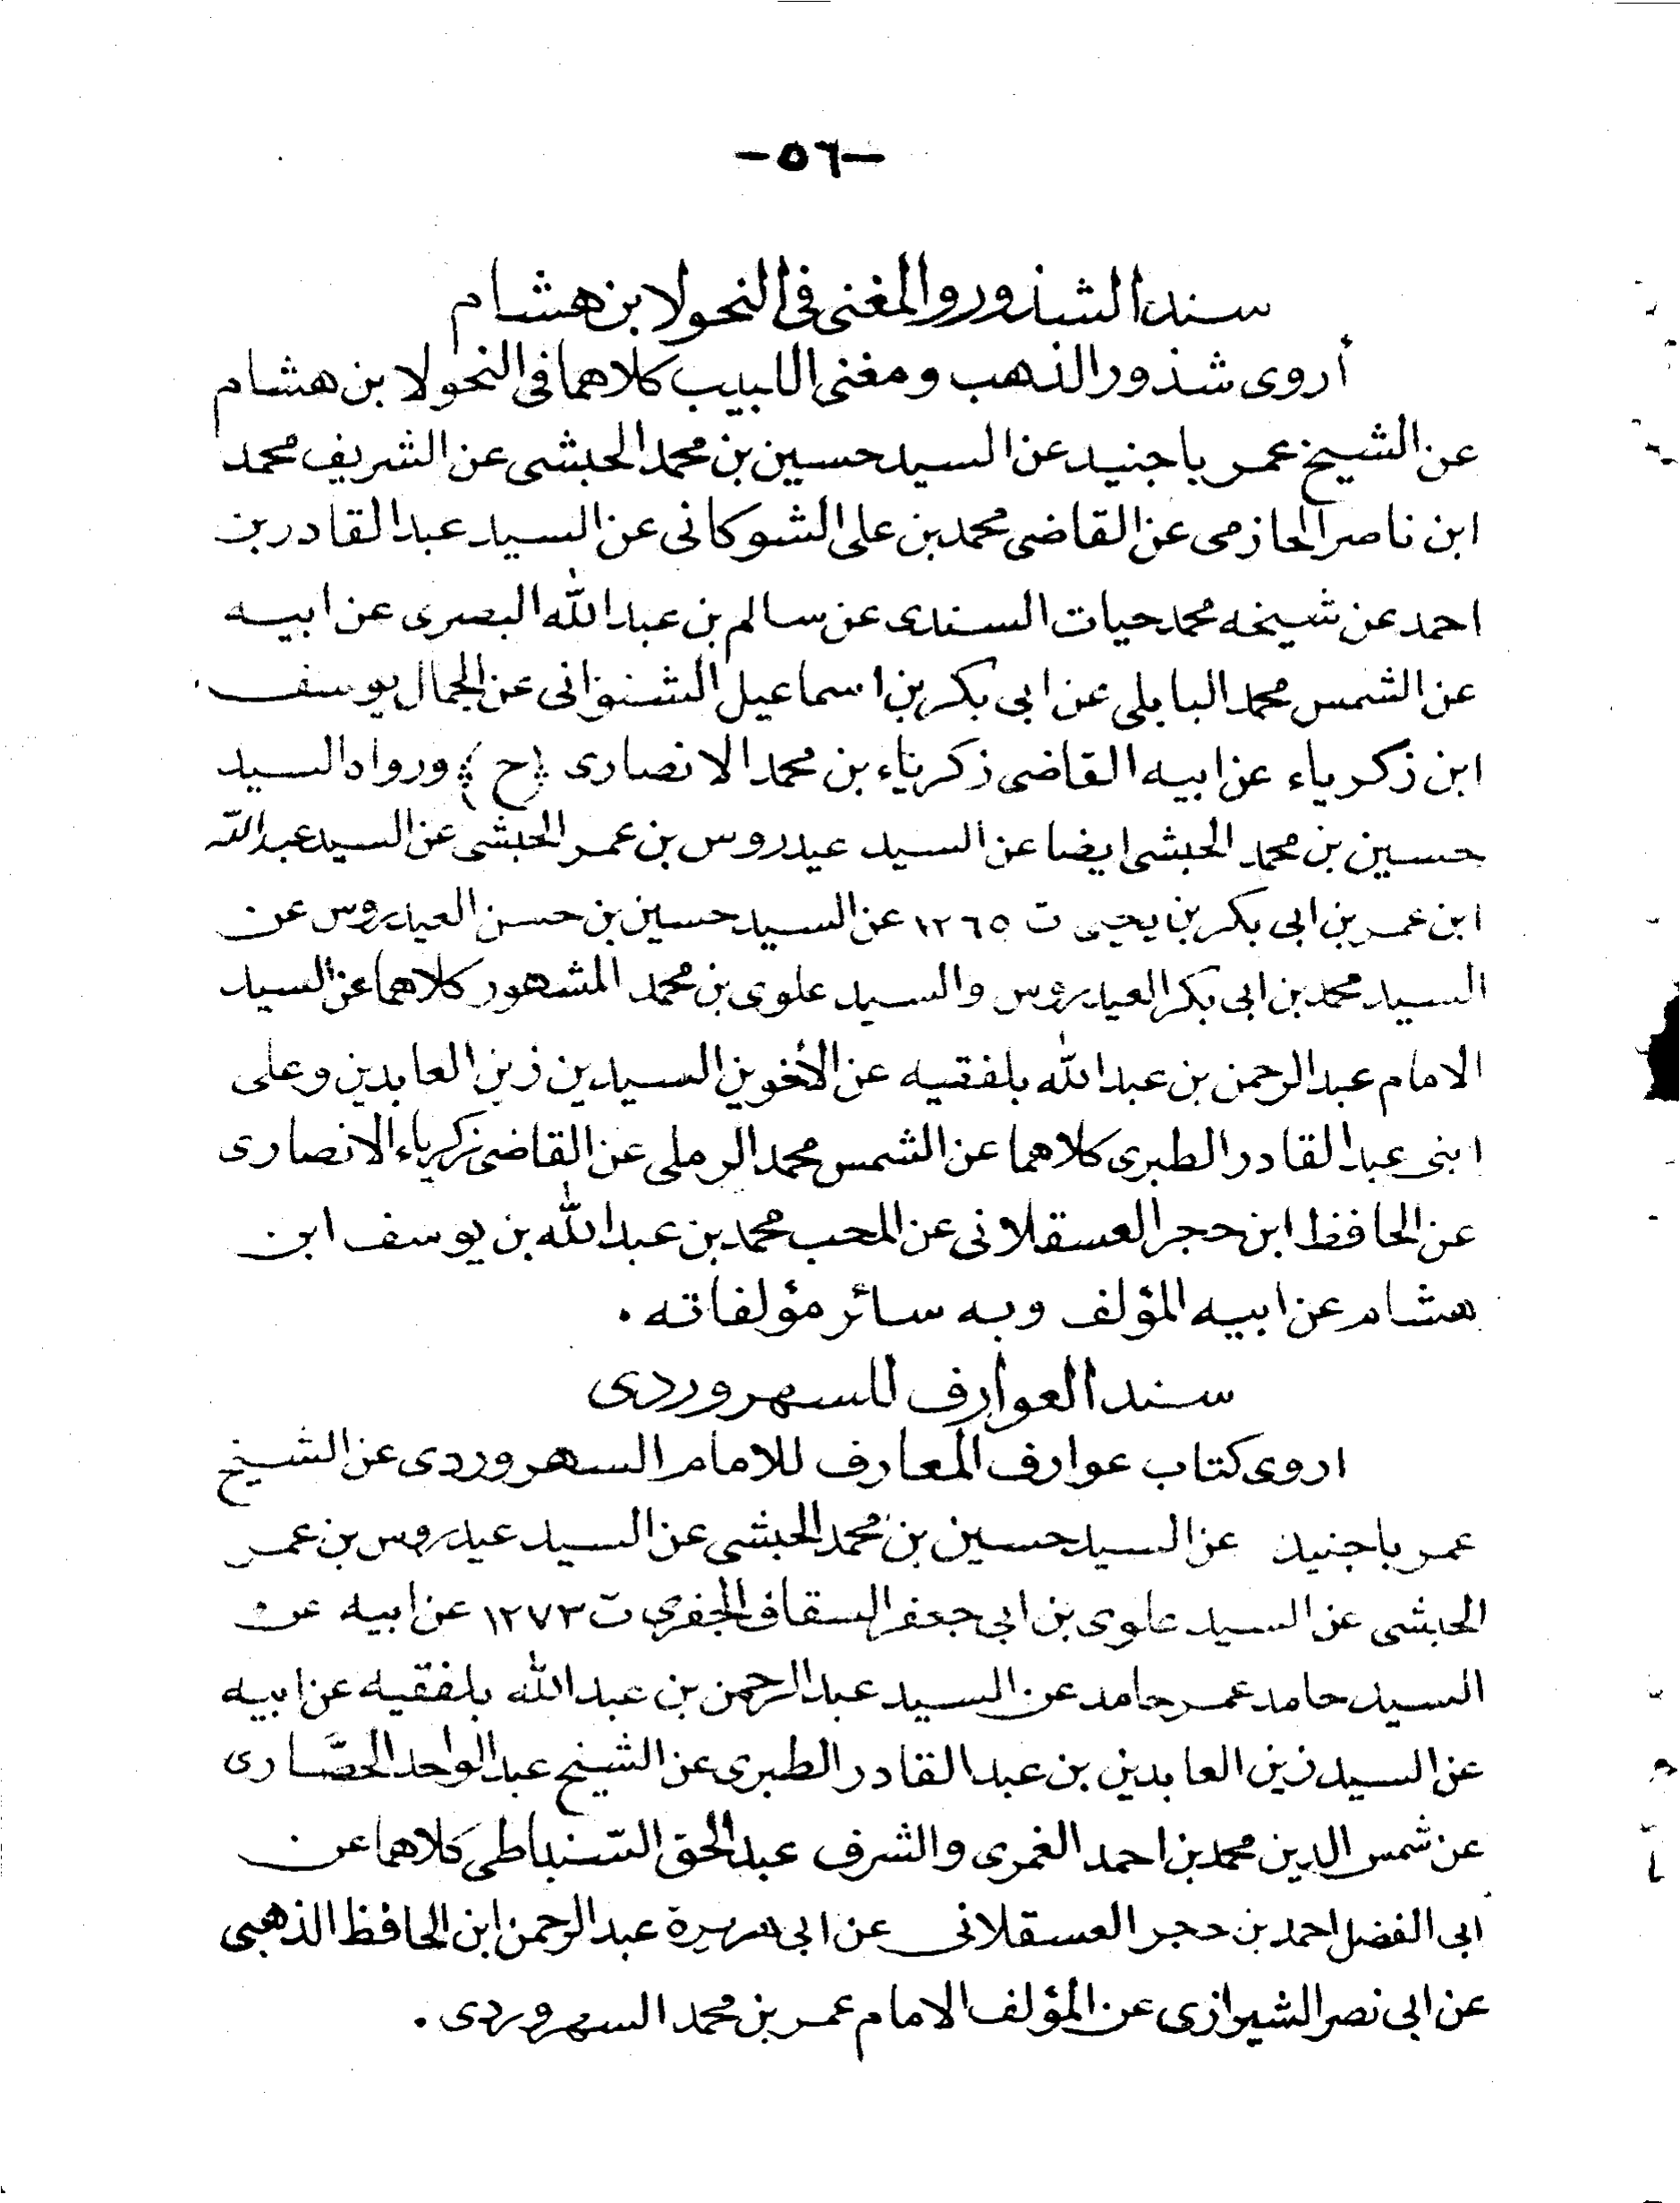 -٥٦-
سند الشذور والمغنى فى النحو لابن هشام
أروى شذور الذهب ومغنى اللبيب كلاهما فى النحو لابن هشام
عن الشيخ عمر باجنيد عن السيد حسين بن محمد الحبشى عن الشريف محمد
ابن ناصر الحازمى عن القاضى محمد بن على الشوكانى عن السيد عبد القادر بن
احمد عن شيخه محمد حيات السندى عن سالم بن عبد الله البصرى عن ابيه
عن الشمس محمد البابلى عن ابى بكر بن اسماعيل الشنوانى عن الجمال يوسف
ابن زكرياء عن ابيه القاضى زكرياء بن محمد الانصارى (ح) ورواه السيد
حسين بن محمد الحبشى ايضا عن السيد عيدروس بن عمر الحبشى عن السيد عبد الله
ابن عمر بن ابى بكر بن يحيى ت ١٢٦٥ عن السيد حسين بن حسن العيدروس عن
السيد محمد بن ابى بكر العيدروس والسيد علوى بن محمد المشهور كلاهما عن السيد
الامام عبد الرحمن بن عبد الله بلفقيه عن الأخوين السيدين زين العابدين وعلى
ابنى عبد القادر الطبرى كلاهما عن الشمس محمد الرملى عن القاضى زكرياء الانصارى
عن الحافظ ابن حجر العسقلانى عن المحب محمد بن عبد الله بن يوسف ابن
هشام عن ابيه المؤلف وبه سائر مؤلفاته .
سند العوارف للسهروردى
اروى كتاب عوارف المعارف للامام السهروردى عن الشيخ
عمر باجنيد عن السيد حسين بن محمد الحبشى عن السيد عيدروس بن عمر
الحبشى عن السيد علوى بن ابى جعفر السقاف الجفرى ت ١٢٧٣ عن ابيه عن
السيد حامد عمر حامد عن السيد عبد الرحمن بن عبد الله بلفقيه عن ابيه
عن السيد زين العابدين بن عبد القادر الطبرى عن الشيخ عبد الواحد الحصَّارى
عن شمس الدين محمد بن احمد الغمرى والشرف عبد الحق السنباطى كلاهما عن
ابى الفضل احمد بن حجر العسقلانى عن ابى هريرة عبد الرحمن ابن الحافظ الذهبى
عن ابى نصر الشيرازى عن المؤلف الامام عمر بن محمد السهروردى .